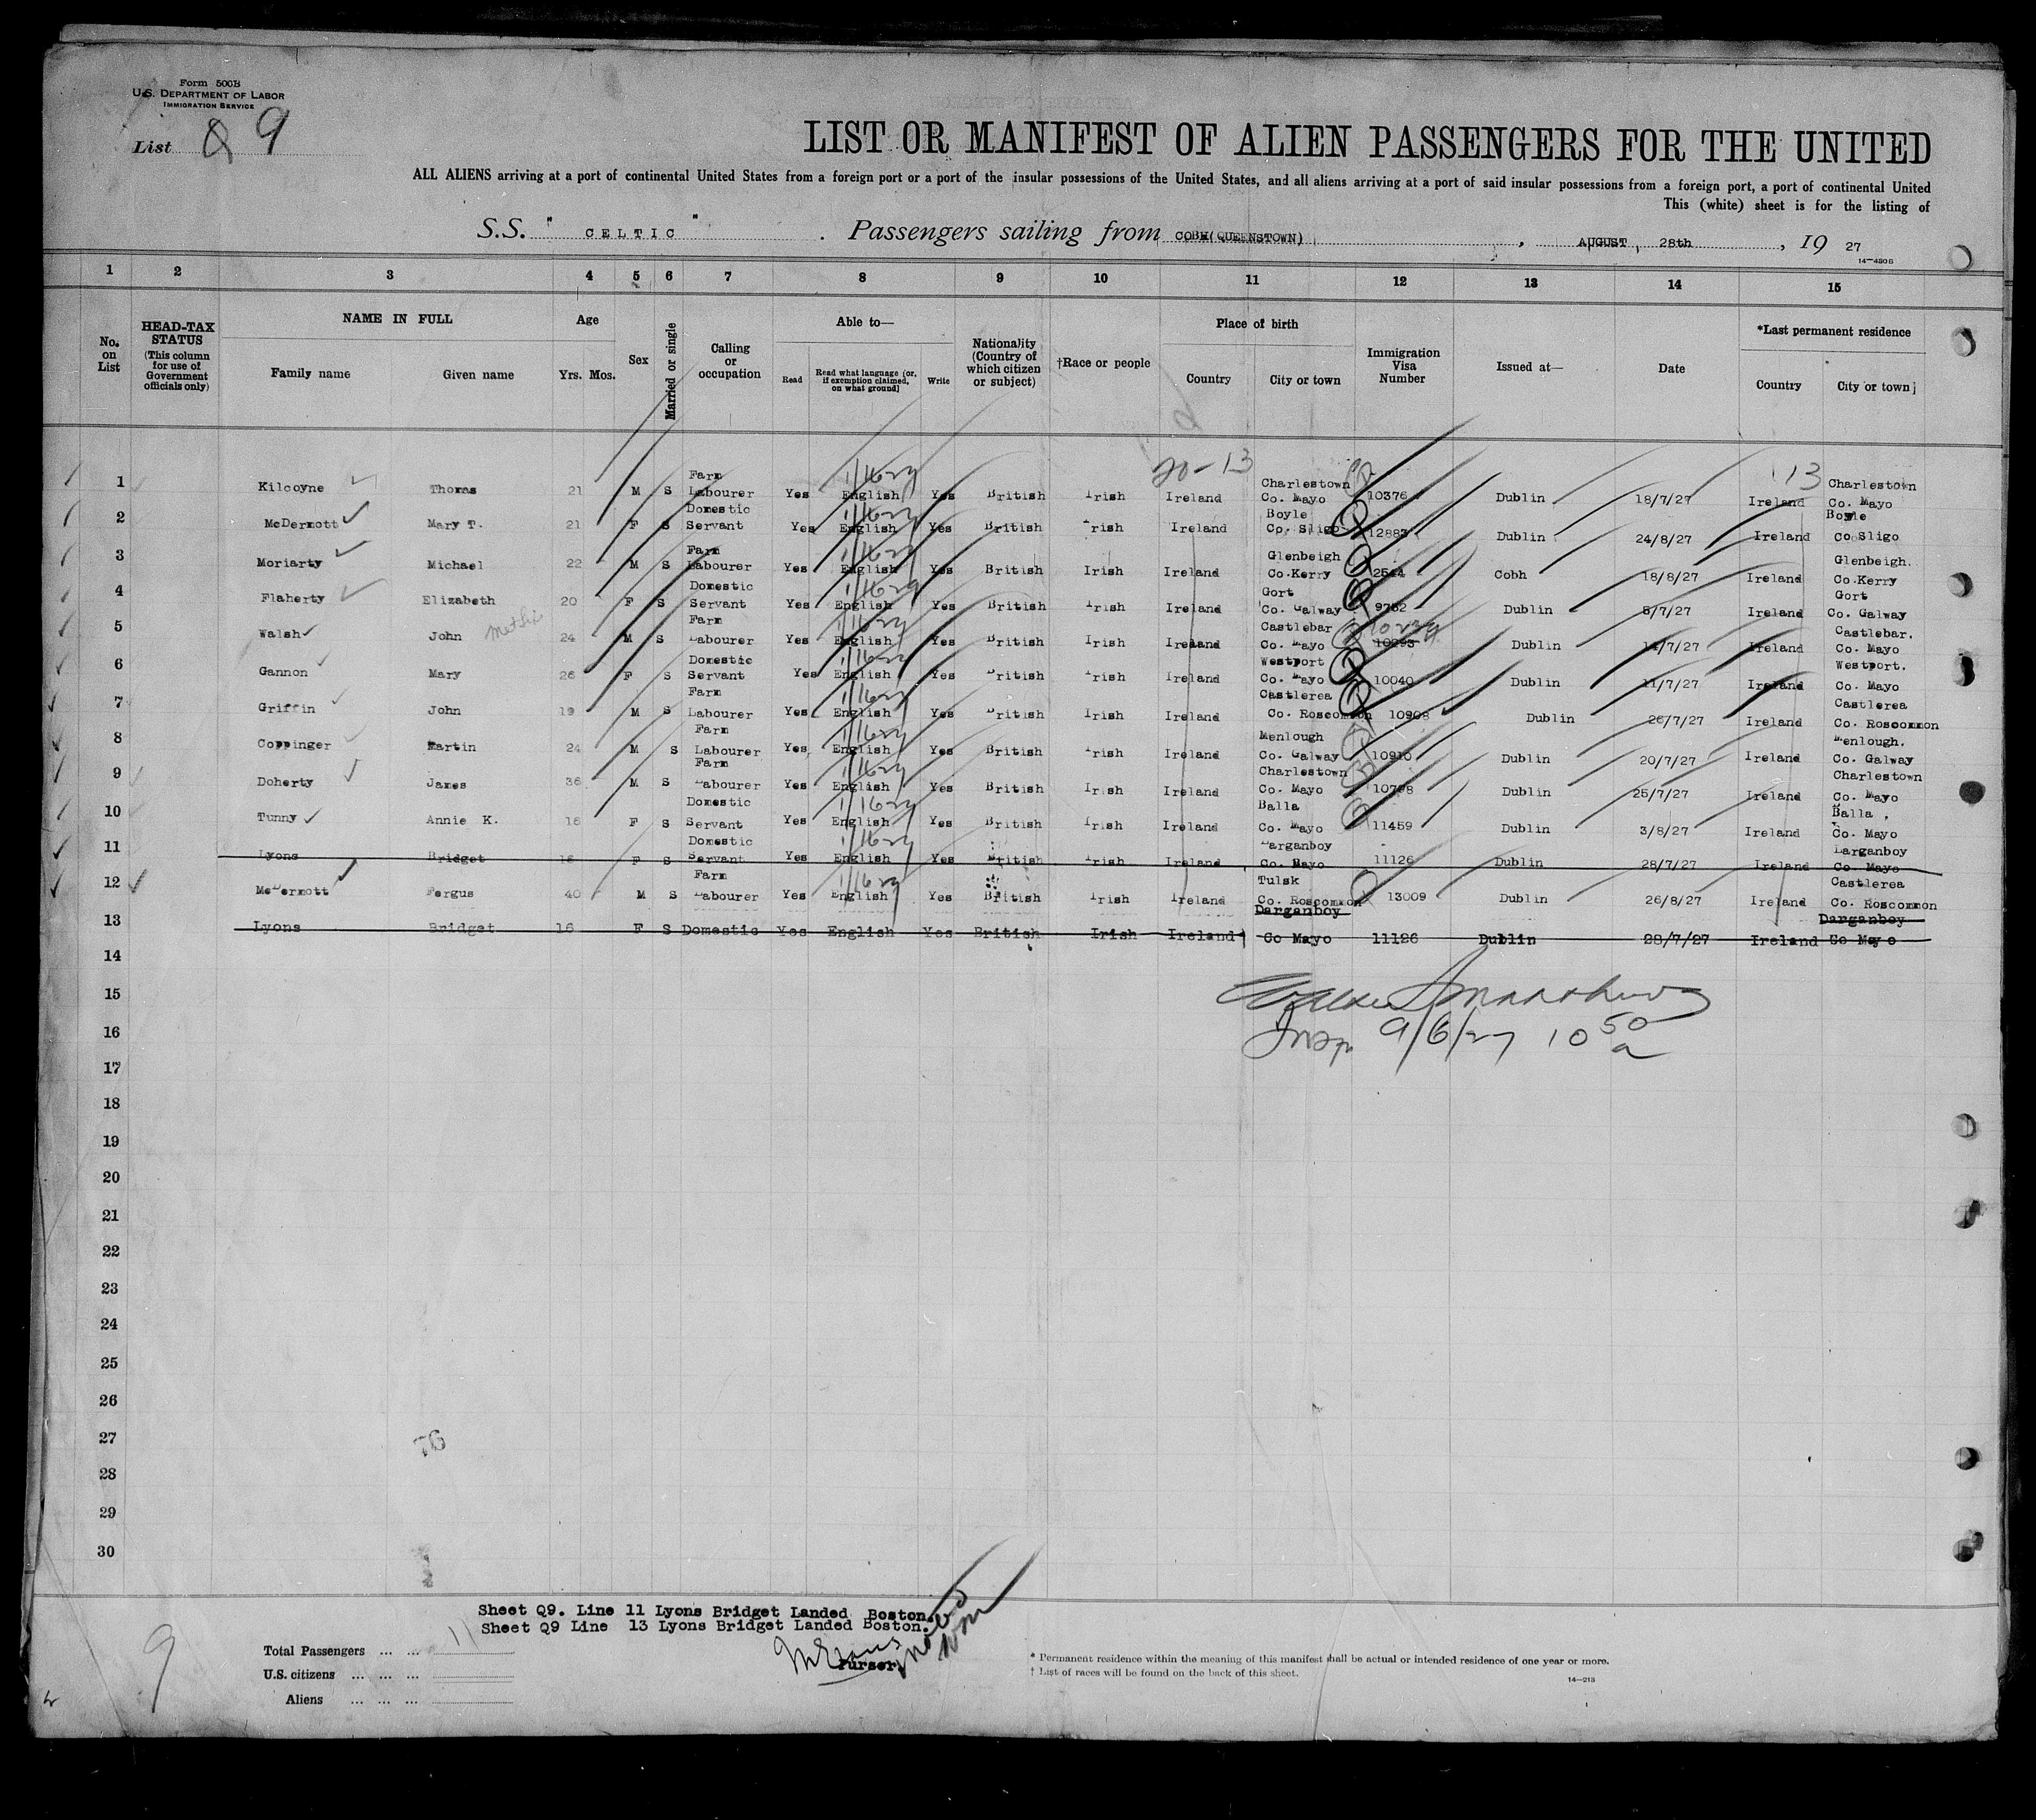 Form 500B
U.S. DEPARTMENT OF LABOR
IMMIGRATION SERVICE
List Q 9
LIST OR MANIFEST OF ALIEN PASSENGERS FOR THE UNITED
ALL ALIENS arriving at a port of continental United States from a foreign port or a port of the insular possessions of the United States, and all aliens arriving at a port of said insular possessions from a foreign port, a port of continental United
This (white) sheet is for the listing of
S.S. " CELTIC " . Passengers sailing from COBH(QUEENSTOWN) , AUGUST , 28th , 19 27
14-480B
1 2 3 4 5 6 7 8 9 10 11 12 13 14 15
No. on List
HEAD-TAX STATUS (This column for use of Government officials only)
NAME IN FULL
Family name Given name
Age
Yrs. Mos.
Sex
Married or single
Calling or occupation
Able to—
Read Read what language [or, if exemption claimed, on what ground] Write
Nationality (Country of which citizen or subject)
†Race or people
Place of birth
Country City or town
Immigration Visa Number
Issued at—
Date
*Last permanent residence
Country City or town
20-13 13
1 Kilcoyne Thomas 21 M S Farm Labourer Yes English Yes British Irish Ireland Charlestown Co. Mayo 10376 Dublin 18/7/27 Ireland Charlestown Co. Mayo
2 McDermott Mary T. 21 F S Domestic Servant Yes English Yes British Irish Ireland Boyle Co. Sligo 12883 Dublin 24/8/27 Ireland Boyle Co Sligo
3 Moriarty Michael 22 M S Farm Labourer Yes English Yes British Irish Ireland Glenbeigh Co.Kerry 2544 Cobh 18/8/27 Ireland Glenbeigh. Co.Kerry
4 Flaherty Elizabeth 20 F S Domestic Servant Yes English Yes British Irish Ireland Gort Co. Galway 9762 Dublin 8/7/27 Ireland Gort Co. Galway
5 Walsh John 24 M S Farm Labourer Yes English Yes British Irish Ireland Castlebar Co. Mayo 10293 Dublin 14/7/27 Ireland Castlebar. Co. Mayo
6 Gannon Mary 26 F S Domestic Servant Yes English Yes British Irish Ireland Westport Co. Mayo 10040 Dublin 11/7/27 Ireland Westport. Co. Mayo
7 Griffin John 19 M S Farm Labourer Yes English Yes British Irish Ireland Castlerea Co. Roscommon 10908 Dublin 26/7/27 Ireland Castlerea Co. Roscommon
8 Coppinger Martin 24 M S Farm Labourer Yes English Yes British Irish Ireland Menlough Co. Galway 10910 Dublin 20/7/27 Ireland Menlough. Co. Galway
9 Doherty James 36 M S Farm Labourer Yes English Yes British Irish Ireland Charlestown Co. Mayo 10798 Dublin 25/7/27 Ireland Charlestown Co. Mayo
10 Tunny Annie K. 16 F S Domestic Servant Yes English Yes British Irish Ireland Balla Co. Mayo 11459 Dublin 3/8/27 Ireland Balla , Co. Mayo
11 Lyons Bridget 16 F S Domestic Servant Yes English Yes British Irish Ireland Darganboy Co. Mayo 11126 Dublin 28/7/27 Ireland Darganboy Co. Mayo
12 McDermott Fergus 40 M S Farm Labourer Yes English Yes British Irish Ireland Tulsk Co. Roscommon 13009 Dublin 26/8/27 Ireland Castlerea Co. Roscommon
13 Lyons Bridget 16 F S Domestic Yes English Yes British Irish Ireland Darganboy Co Mayo 11126 Dublin 28/7/27 Ireland Darganboy Co Mayo
14
15
16 Insp. 9/6/27 10 50 a
17
18
19
20
21
22
23
24
25
26
27
28
29
30
76
Sheet Q9. Line 11 Lyons Bridget Landed Boston.
Sheet Q9 Line 13 Lyons Bridget Landed Boston.
Purser
9
Total Passengers ... ... 11
U.S. citizens ... ... ...
Aliens ... ... ...
* Permanent residence within the meaning of this manifest shall be actual or intended residence of one year or more.
† List of races will be found on the back of this sheet.
14-213